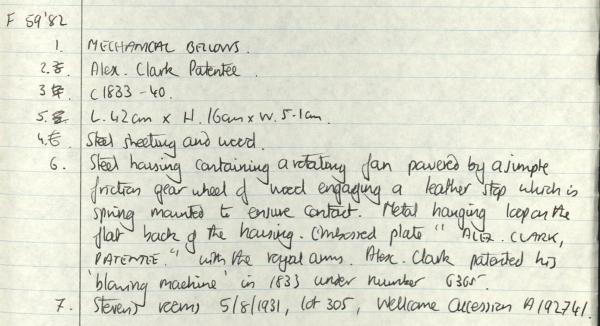 F 59'82
1. MECHANICAL BELLOWS.
2. Alex. Clark Patentee.
3. c1833-40.
5. L. 42cm x H. 16cm x W. 5.1cm.
4. Steel sheeting and wood.
6. Steel housing containing a rotating fan powered by a simple
friction gear wheel of wood engaging a leather stop which is
spring mounted to ensure contact. Metal hanging loop on the
flat back of the housing. Embossed plate "ALEX. CLARK,
PATENTEE." with the royal arms. Alex. Clark patented his
'blowing machine' in 1833 under number 6365.
7. Stevens rooms 5/8/1931, lot 305, Wellcome Accession A192741.